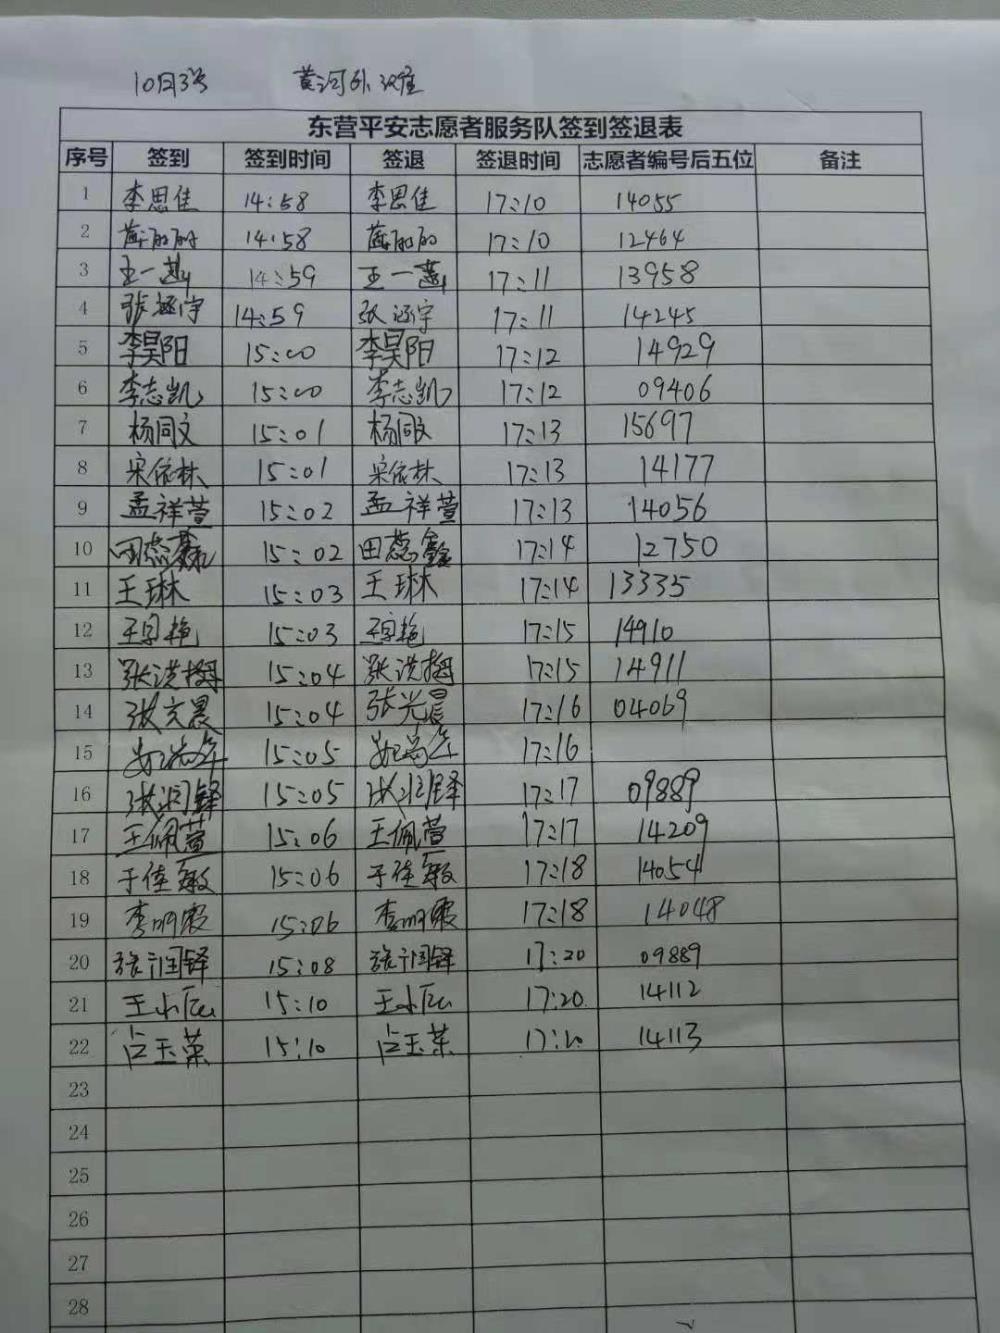 10月3号 黄河外滩
东营平安志愿者服务队签到签退表
序号 签到 签到时间 签退 签退时间 志愿者编号后五位 备注
1 李思佳 14:58 李思佳 17:10 14055
2 14:58 17:10 12464
3 王一 14:59 王一 17:11 13958
4 张涵宇 14:59 张涵宇 17:11 14245
5 李昊阳 15:00 李昊阳 17:12 14929
6 李志凯 15:00 李志凯 17:12 09406
7 杨同文 15:01 杨同文 17:13 15697
8 宋依林 15:01 宋依林 17:13 14177
9 孟祥萱 15:02 孟祥萱 17:13 14056
10 田蕊鑫 15:02 田蕊鑫 17:14 12750
11 王琳 15:03 王琳 17:14 13335
12 15:03 17:15 14910
13 张洪梅 15:04 张洪梅 17:15 14911
14 15:04 张光晨 17:16 04069
15 15:05 17:16
16 张润铎 15:05 张润铎 17:17 09889
17 王佩萱 15:06 王佩萱 17:17 14209
18 于佳敏 15:06 于佳敏 17:18 14054
19 李明霞 15:06 李明霞 17:18 14048
20 张润铎 15:08 张润铎 17:20 09889
21 王小 15:10 王小 17:20 14112
22 占玉荣 15:10 占玉荣 17:20 14113
23
24
25
26
27
28